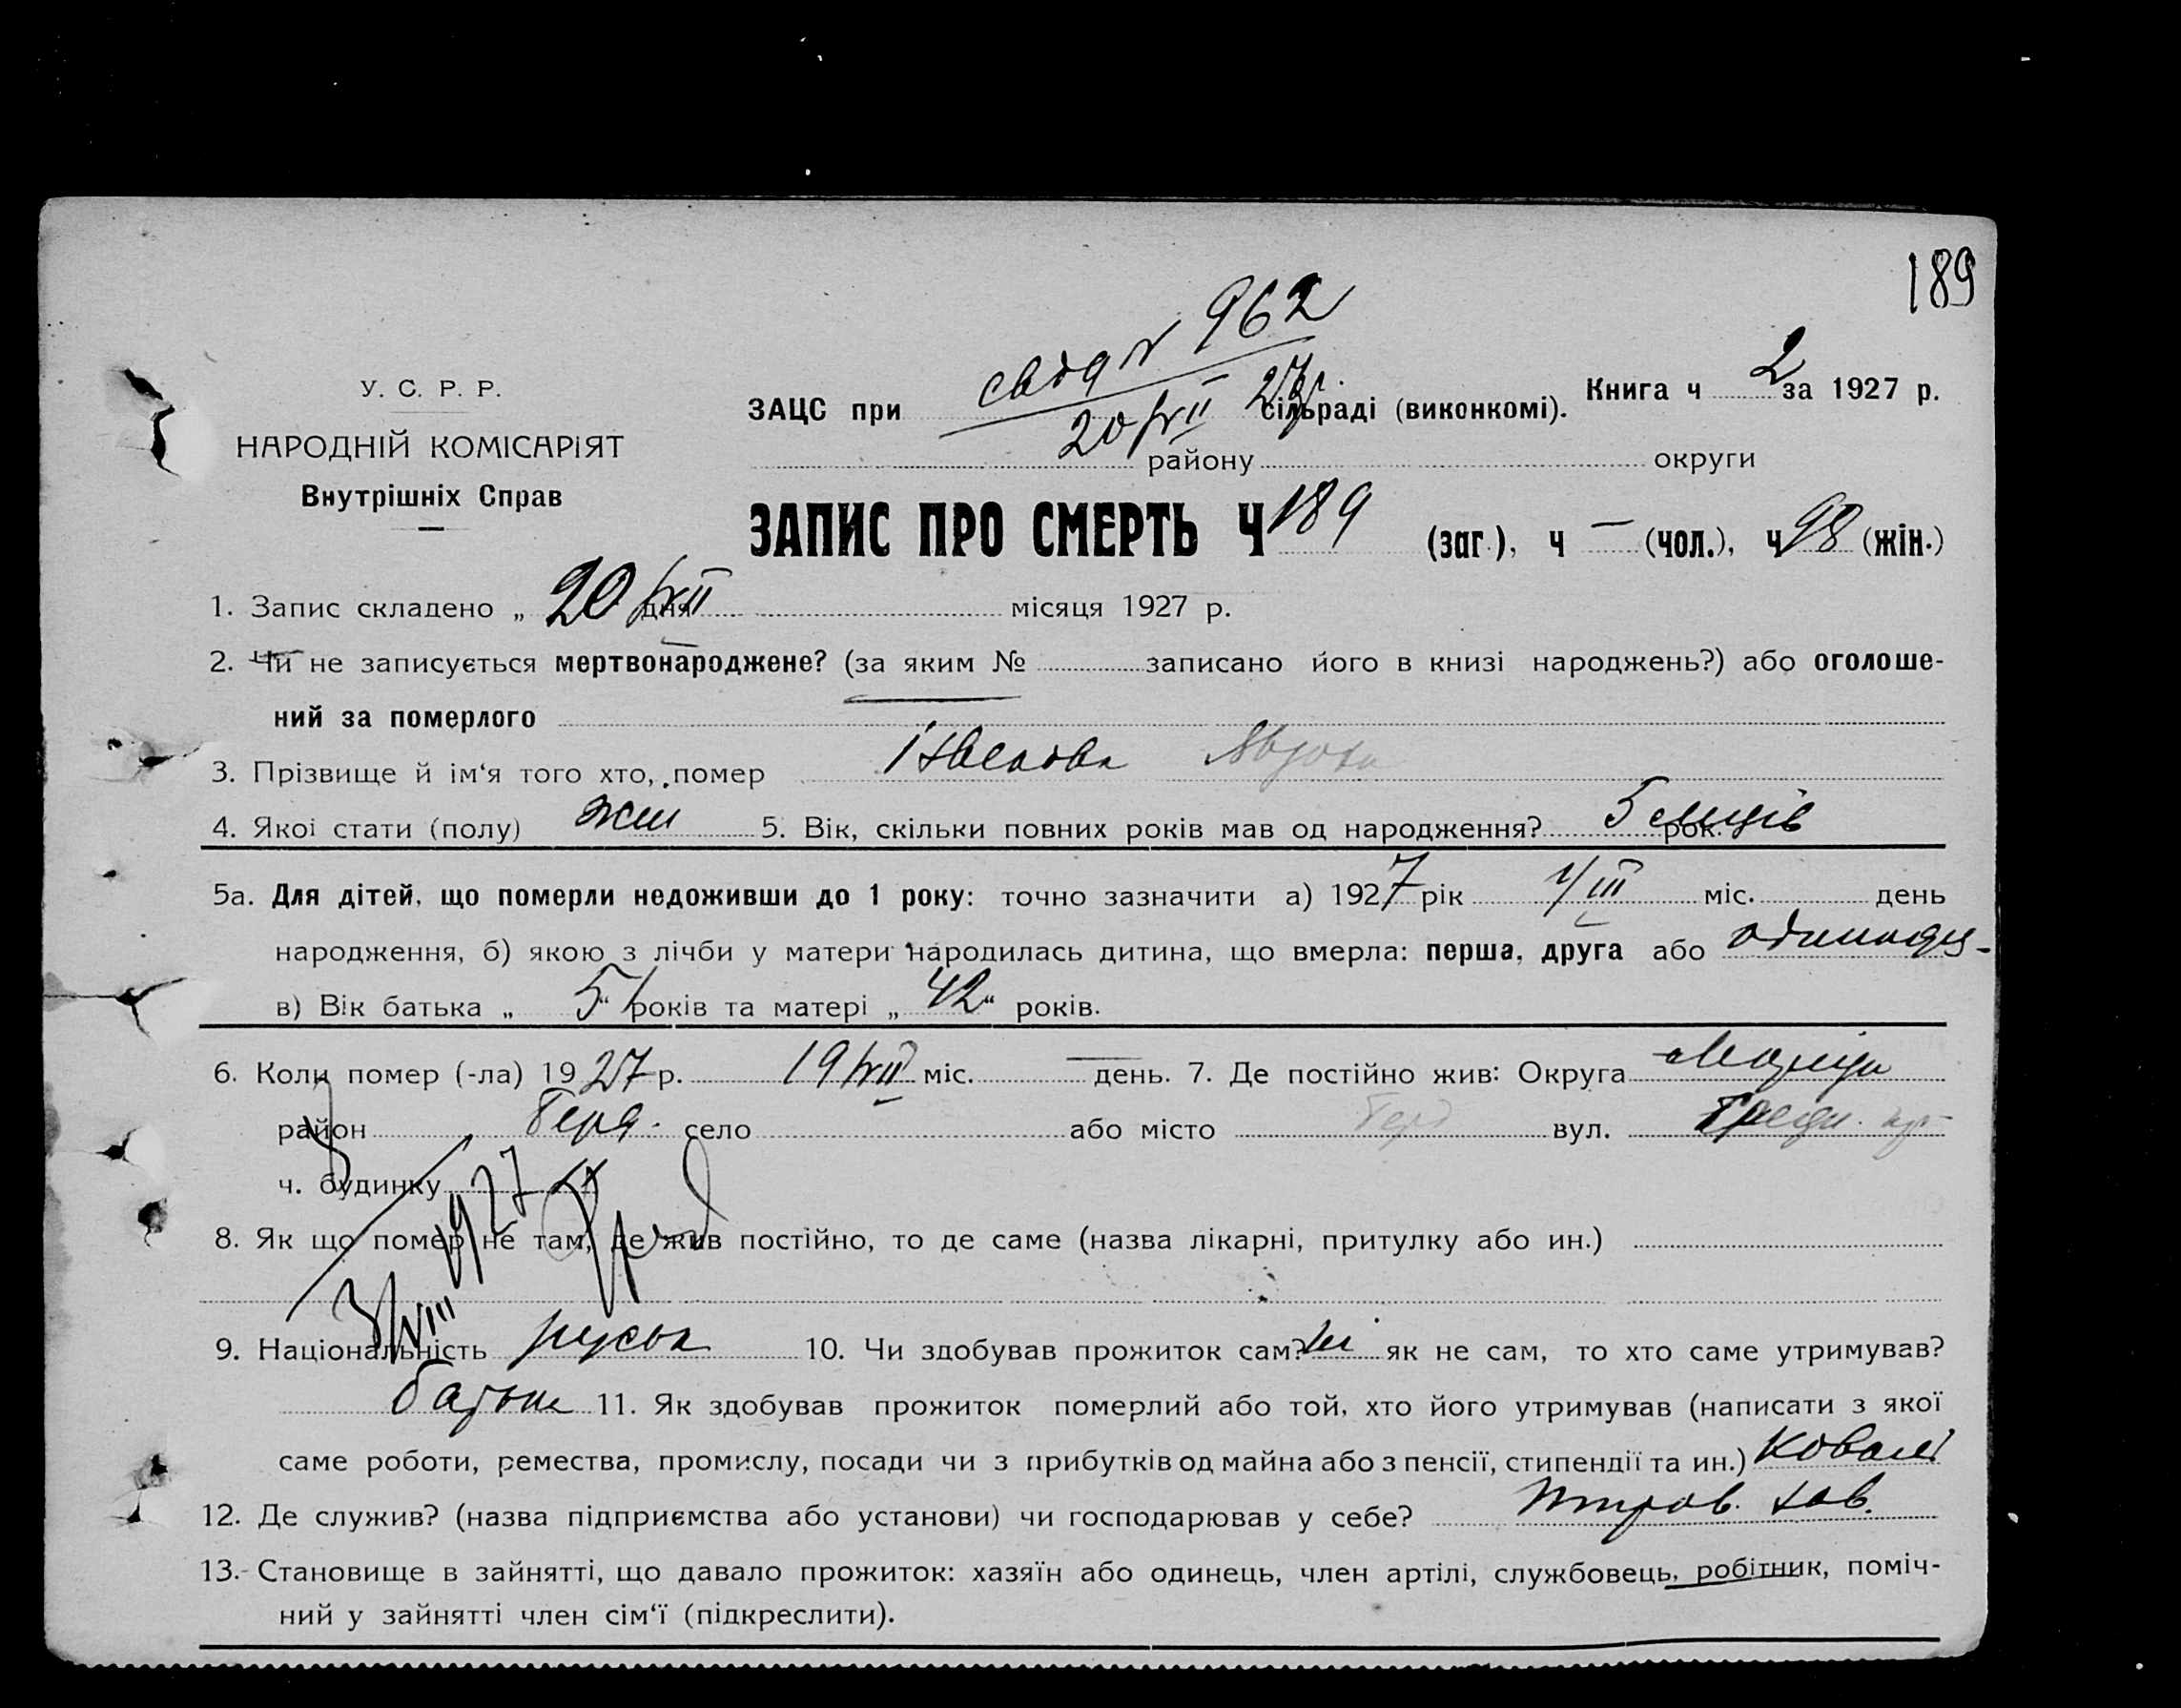 189
свід N 962
20/VII 27 р.
У. С. Р. Р.
НАРОДНІЙ КОМІСАРІЯТ
Внутрішніх Справ
ЗАЦС при сільраді (виконкомі). Книга ч 2 за 1927 р.
району округи
ЗАПИС ПРО СМЕРТЬ Ч 189 (заг.), ч — (чол.), ч 98 (жін.)
1. Запис складено „ 20/VII дня місяця 1927 р.
2. Чи не записується мертвонароджене? (за яким № записано його в книзі народжень?) або оголоше-
ний за померлого
3. Прізвище й ім'я того хто, помер
4. Якої стати (полу) жін 5. Вік, скільки повних років мав од народження? 5 місців рок.
5а. Для дітей, що померли недоживши до 1 року: точно зазначити а) 1927 рік /III міс. день
народження, б) якою з лічби у матери народилась дитина, що вмерла: перша, друга або одинадц-
в) Вік батька „ 51 “ років та матері „ 42 “ років.
6. Коли помер (-ла) 1927 р. 19/VII міс. — день. 7. Де постійно жив: Округа
район Берд. село або місто Берд вул.
ч. будинку
3/VIII 1927
8. Як що помер не там, де жив постійно, то де саме (назва лікарні, притулку або ин.)
9. Національність руська 10. Чи здобував прожиток сам? ні як не сам, то хто саме утримував?
батько 11. Як здобував прожиток померлий або той, хто його утримував (написати з якої
саме роботи, ремества, промислу, посади чи з прибутків од майна або з пенсії, стипендії та ин.) коваль
12. Де служив? (назва підприємства або установи) чи господарював у себе? зав.
13. Становище в зайнятті, що давало прожиток: хазяїн або одинець, член артілі, службовець, робітник, поміч-
ний у зайнятті член сім'ї (підкреслити).